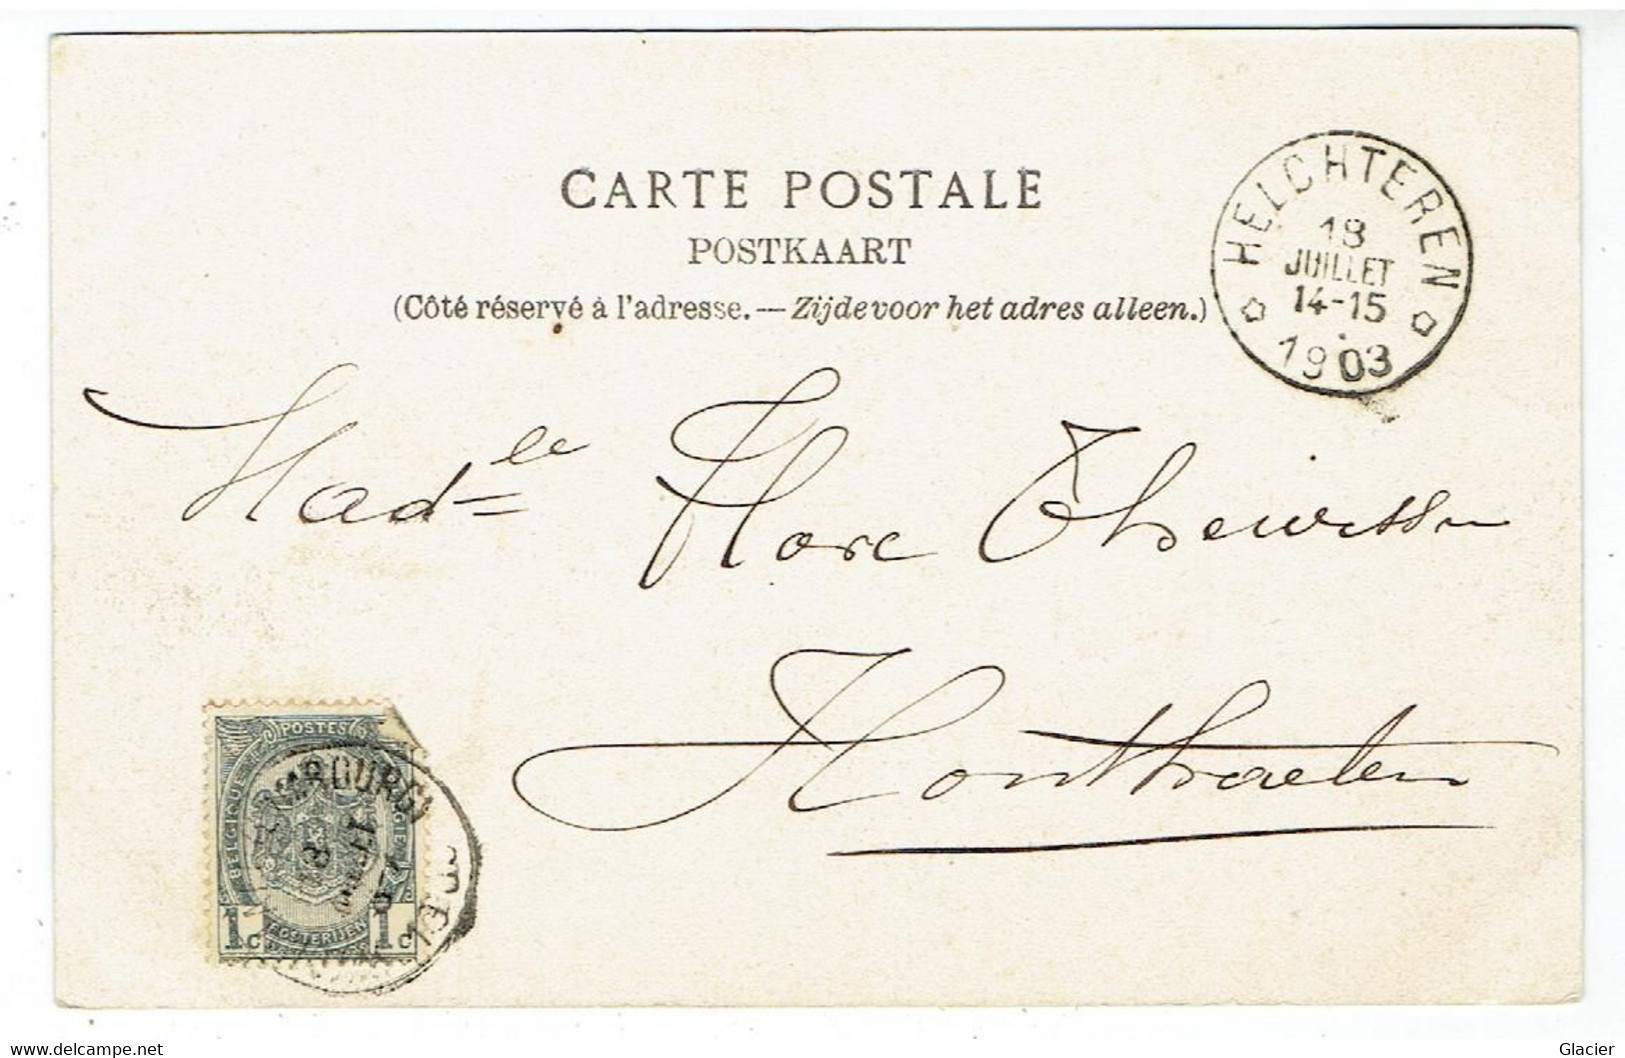 CARTE POSTALE
POSTKAART
(Côté réservé à l'adresse. — Zijde voor het adres alleen.)
HELCHTEREN
18
JUILLET
14-15
1903
Madlle Flore Theuwissen
Houthaelen
POSTES
BELGIQUE
POSTERIJEN
1c 1c
delcampe.net
Glacier